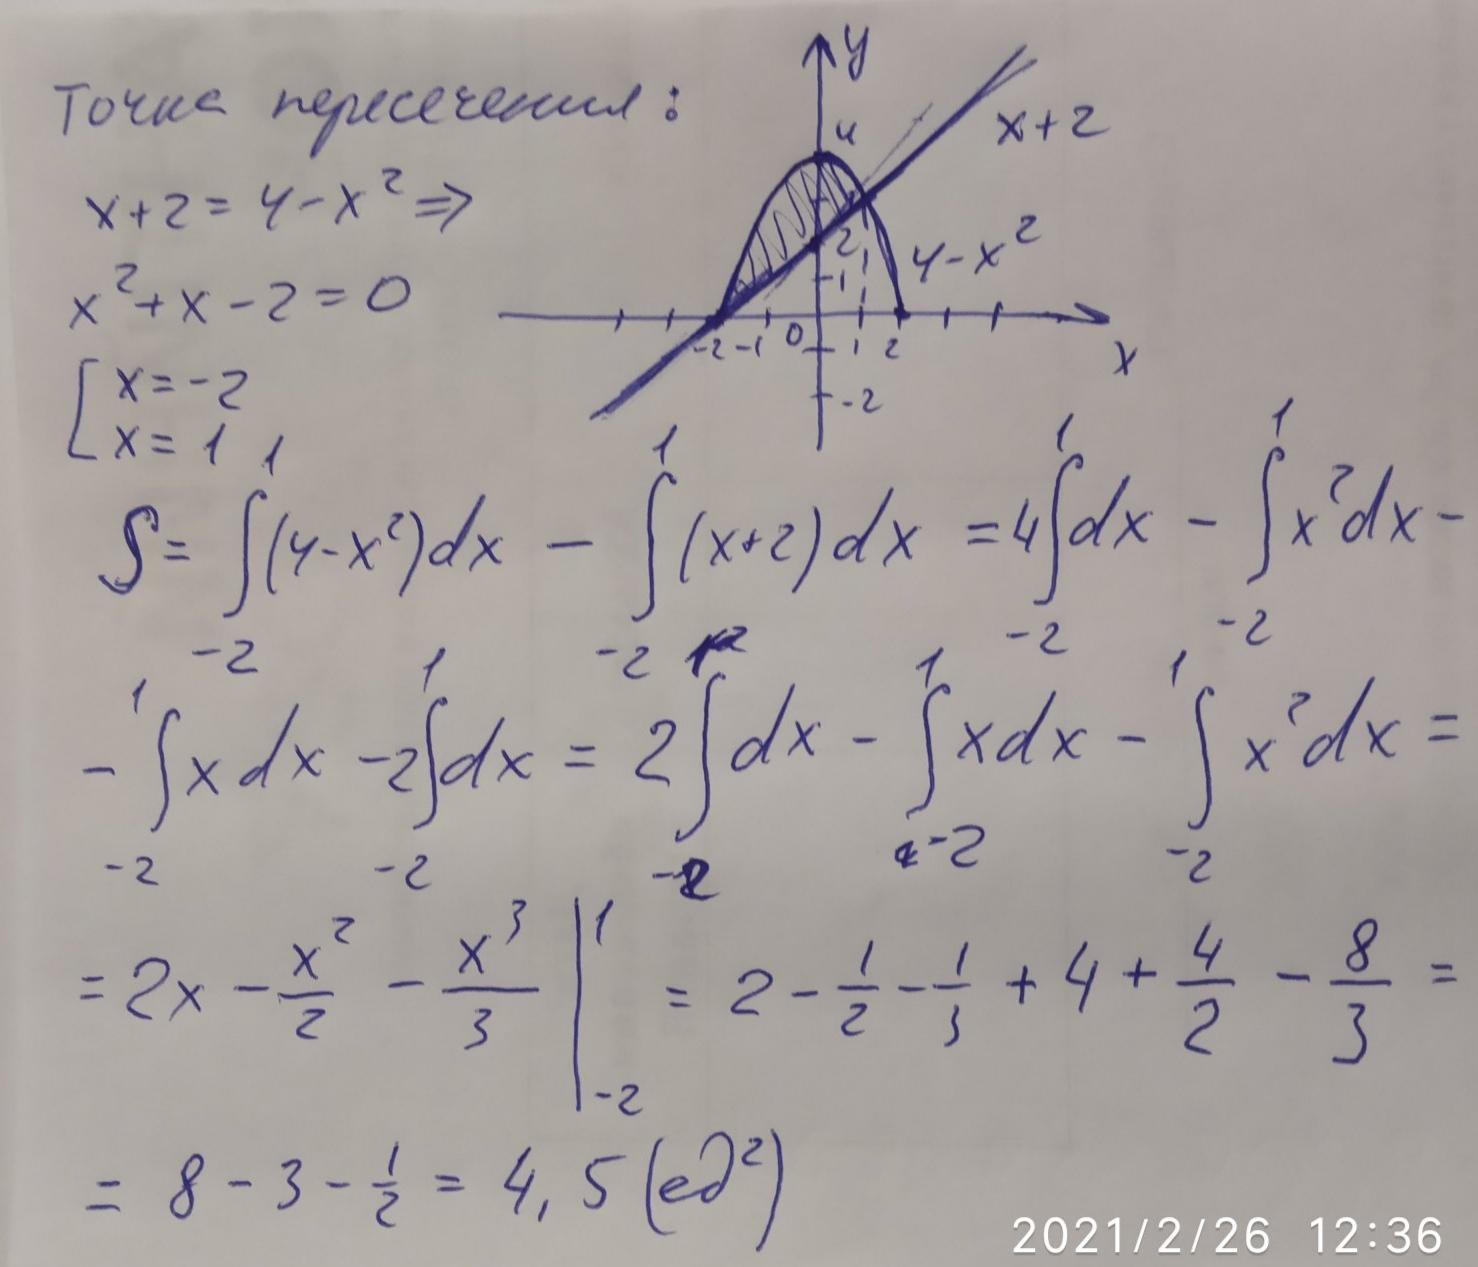 Точка пересечения:
x+2 = 4-x² ⇒
x²+x-2=0
[ x=-2
[ x=1
y
4
x+2
2
4-x²
1
-2 -1 0 1 2
x
-2
S = ∫₋₂¹ (4-x²)dx - ∫₋₂¹ (x+2)dx = 4∫₋₂¹ dx - ∫₋₂¹ x²dx -
- ∫₋₂¹ x dx - 2∫₋₂¹ dx = 2∫₋₂ dx - ∫₋₂¹ xdx - ∫₋₂¹ x²dx =
= 2x - x²/2 - x³/3 |₋₂¹ = 2 - 1/2 - 1/3 + 4 + 4/2 - 8/3 =
= 8 - 3 - 1/2 = 4,5 (ед²)
2021/2/26 12:36